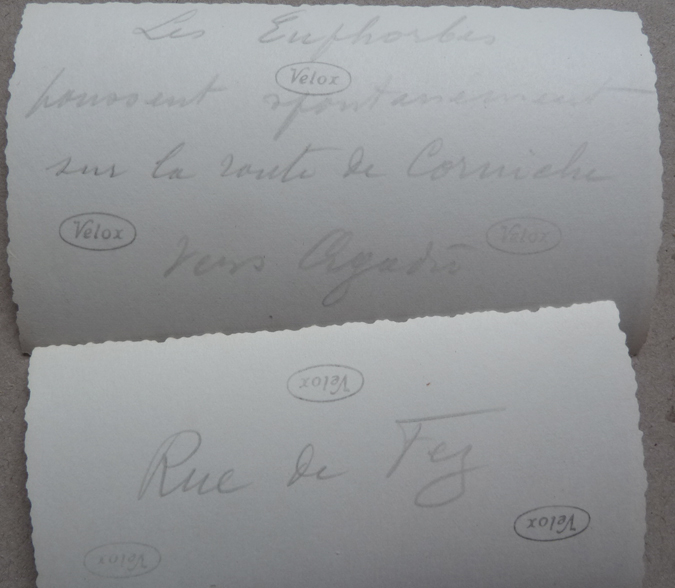 Les Euphorbes
Velox
poussent spontanément
sur la route de Corniche
Velox
Velox
vers Agadir
Velox
Rue de Fez
Velox
Velox